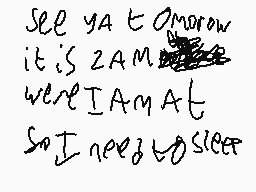 see ya tomorow
it is 2AM
were I AM At
So I need to sleep